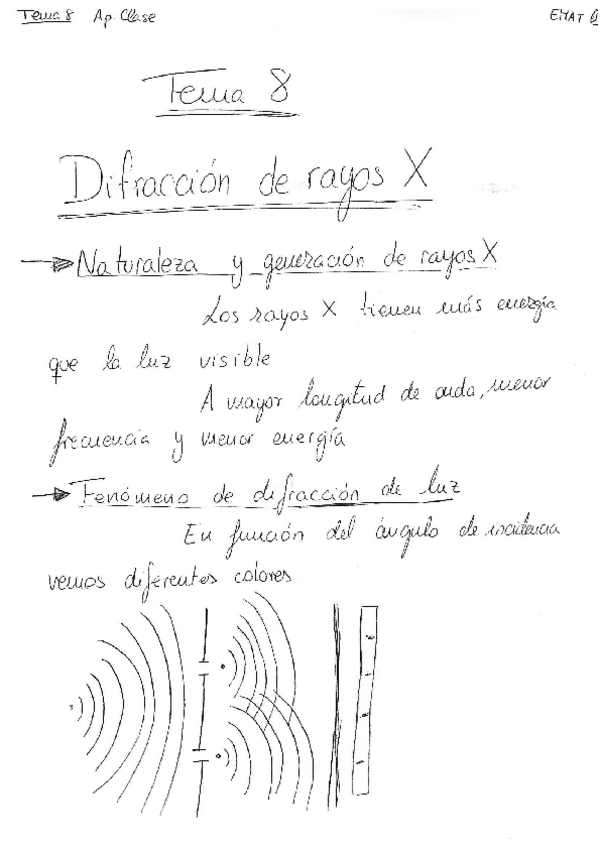 Tema 8 Ap. Clase
EMAT
Tema 8
Difracción de rayos X
Naturaleza y generación de rayos X
Los rayos X tienen más energía
que la luz visible
A mayor longitud de onda, menor
frecuencia y menor energía
Fenómeno de difracción de luz
En función del ángulo de incidencia
vemos diferentes colores